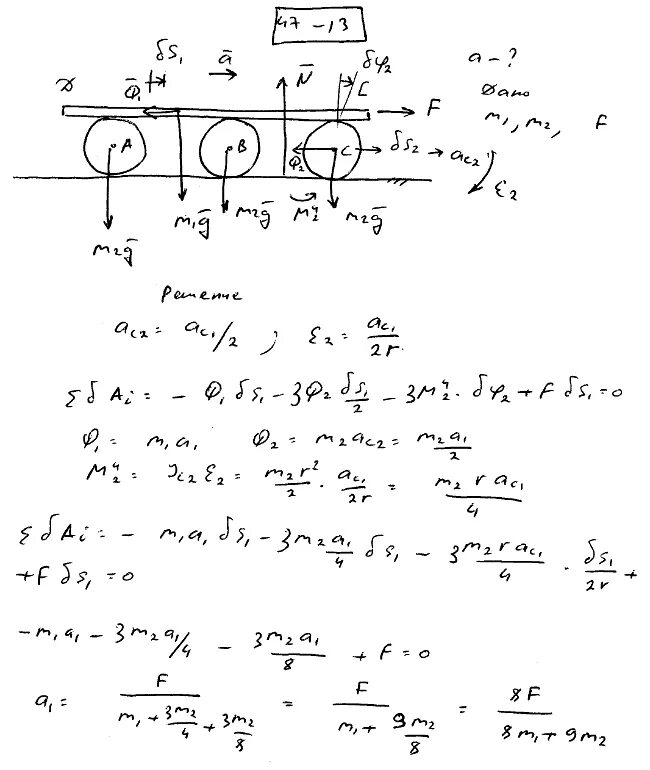 47-13
δS₁
ā
N̄
δφ₂
a - ?
Φ̄₁
F
Дано
m₁, m₂, F
A
B
C
Φ₂
δS₂ → a_C2
ε₂
m₂ḡ
m₁ḡ
m₂ḡ
M₂ᶸ
m₂ḡ
Решение
a_C2 = a_C1/2 ; ε₂ = a_C1/2r.
ΣδAᵢ = - Φ₁ δS₁ - 3Φ₂ δS₁/2 - 3M₂ᶸ · δφ₂ + F δS₁ = 0
Φ₁ = m₁a₁ Φ₂ = m₂a_C2 = m₂a₁/2
M₂ᶸ = J_C2 ε₂ = m₂r²/2 · a_C1/2r = m₂ r a_C1/4
ΣδAᵢ = - m₁a₁ δS₁ - 3m₂a₁/4 δS₁ - 3m₂ r a_C1/4 · δS₁/2r +
+F δS₁ = 0
-m₁a₁ - 3m₂a₁/4 - 3m₂a₁/8 + F = 0
a₁ = F/(m₁ + 3m₂/4 + 3m₂/8) = F/(m₁ + 9m₂/8) = 8F/(8m₁ + 9m₂)